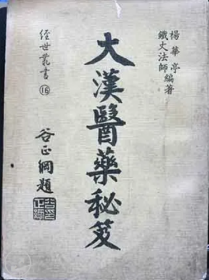 楊華亭
鐵丈法師編著
大漢醫藥秘笈
經世叢書⑯
谷正綱題